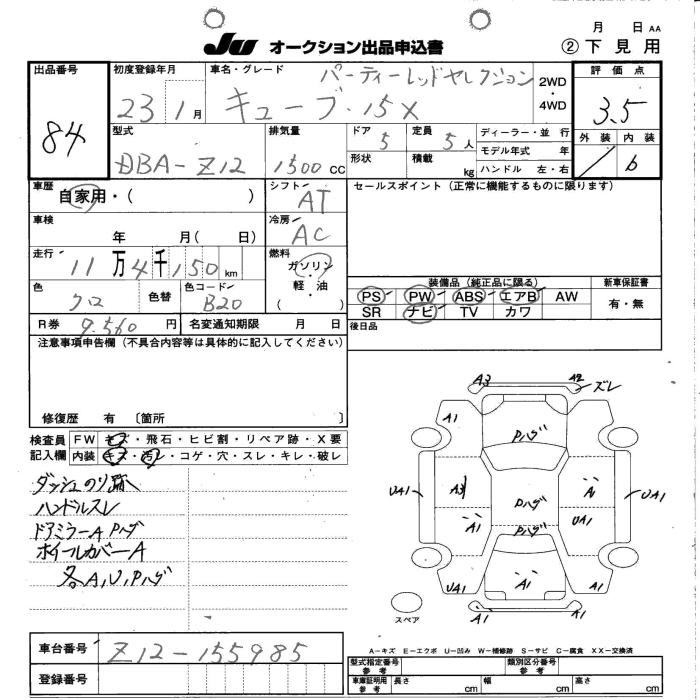 月 日 AA
JU オークション出品申込書 ② 下見用
出品番号 84
初度登録年月 23 1月
車名・グレード パーティーレッドセレクション
キューブ・15X
2WD・4WD
評価点 3.5
外装 内装 6
型式 DBA-Z12
排気量 1500 CC
ドア 5 定員 5人
形状 積載 kg
ディーラー・並行
モデル年式 年
ハンドル 左・右
車歴 自家用・( )
シフト AT
セールスポイント(正常に機能するものに限ります)
車検 年 月( 日)
冷房 AC
走行 11万4千150km
燃料 ガソリン・軽・油 ( )
色 クロ 色替 色コード B20
装備品(純正品に限る) 新車保証書
PS PW ABS エアB AW 有・無
SR ナビ TV カワ
R券 9.560円 名変通知期限 月 日
後日品
注意事項申告欄(不具合内容等は具体的に記入してください)
修復歴 有 〔箇所 〕
検査員記入欄 FW キズ・飛石・ヒビ割・リペア跡・X要
内装 キズ・汚レ・コゲ・穴・スレ・キレ・破レ
ダッシュのり跡
ハンドルスレ
ドアミラーA Pハゲ
ホイールカバーA
各A,U,Pハゲ
A3 A2 ズレ
A1 Pハゲ
UA1 A3 Pハゲ A UA1
A1 Pハゲ UA1
UA1 A1 A1
スペア A1 A1
A-キズ E-エクボ U-凹み W-補修跡 S-サビ C-腐食 XX-交換済
車台番号 Z12-155985
登録番号
型式指定番号 参考 類別区分番号 参考
車庫証明用 参考 長さ cm 幅 cm 高さ cm